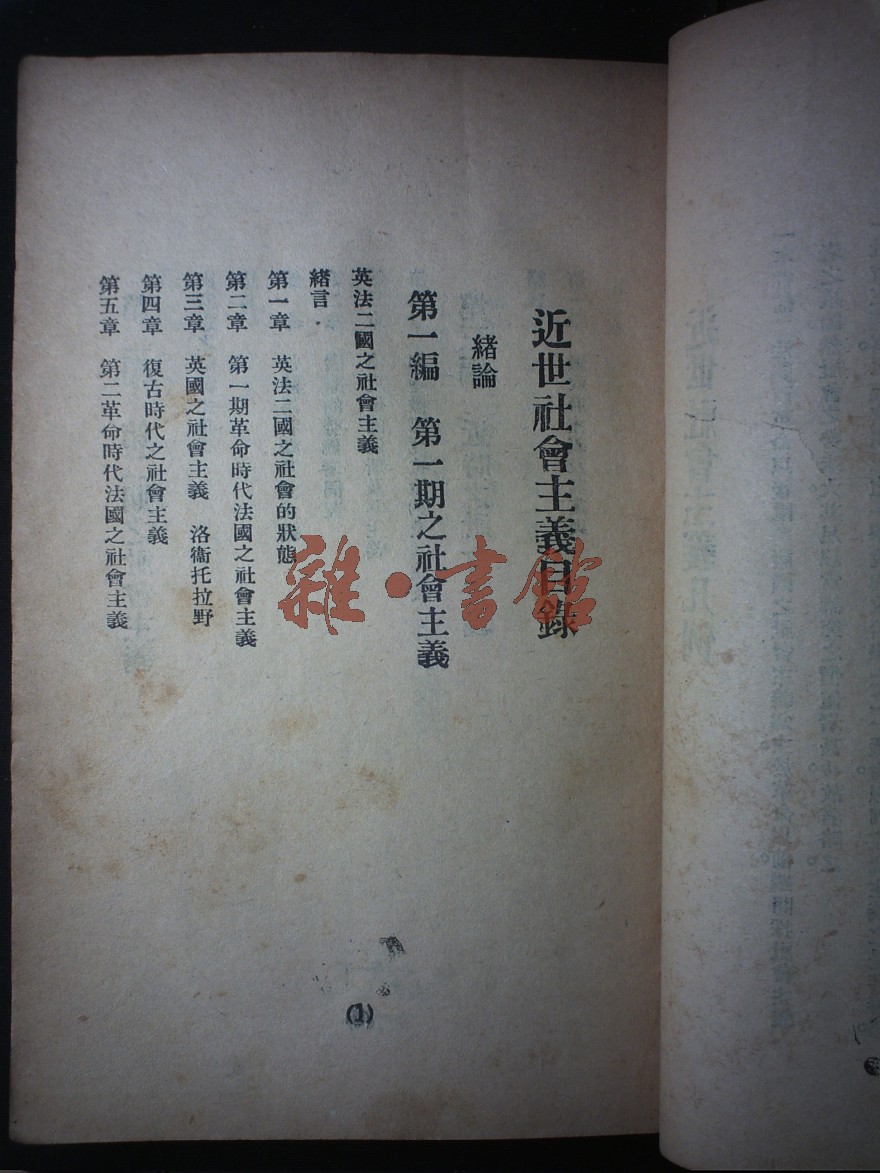 近世社會主義目錄
緒論
第一編 第一期之社會主義
英法二國之社會主義
緒言
第一章 英法二國之社會的狀態
第二章 第一期革命時代法國之社會主義
第三章 英國之社會主義 洛衞托拉野
第四章 復古時代之社會主義
第五章 第二革命時代法國之社會主義
(1)
雜·書館